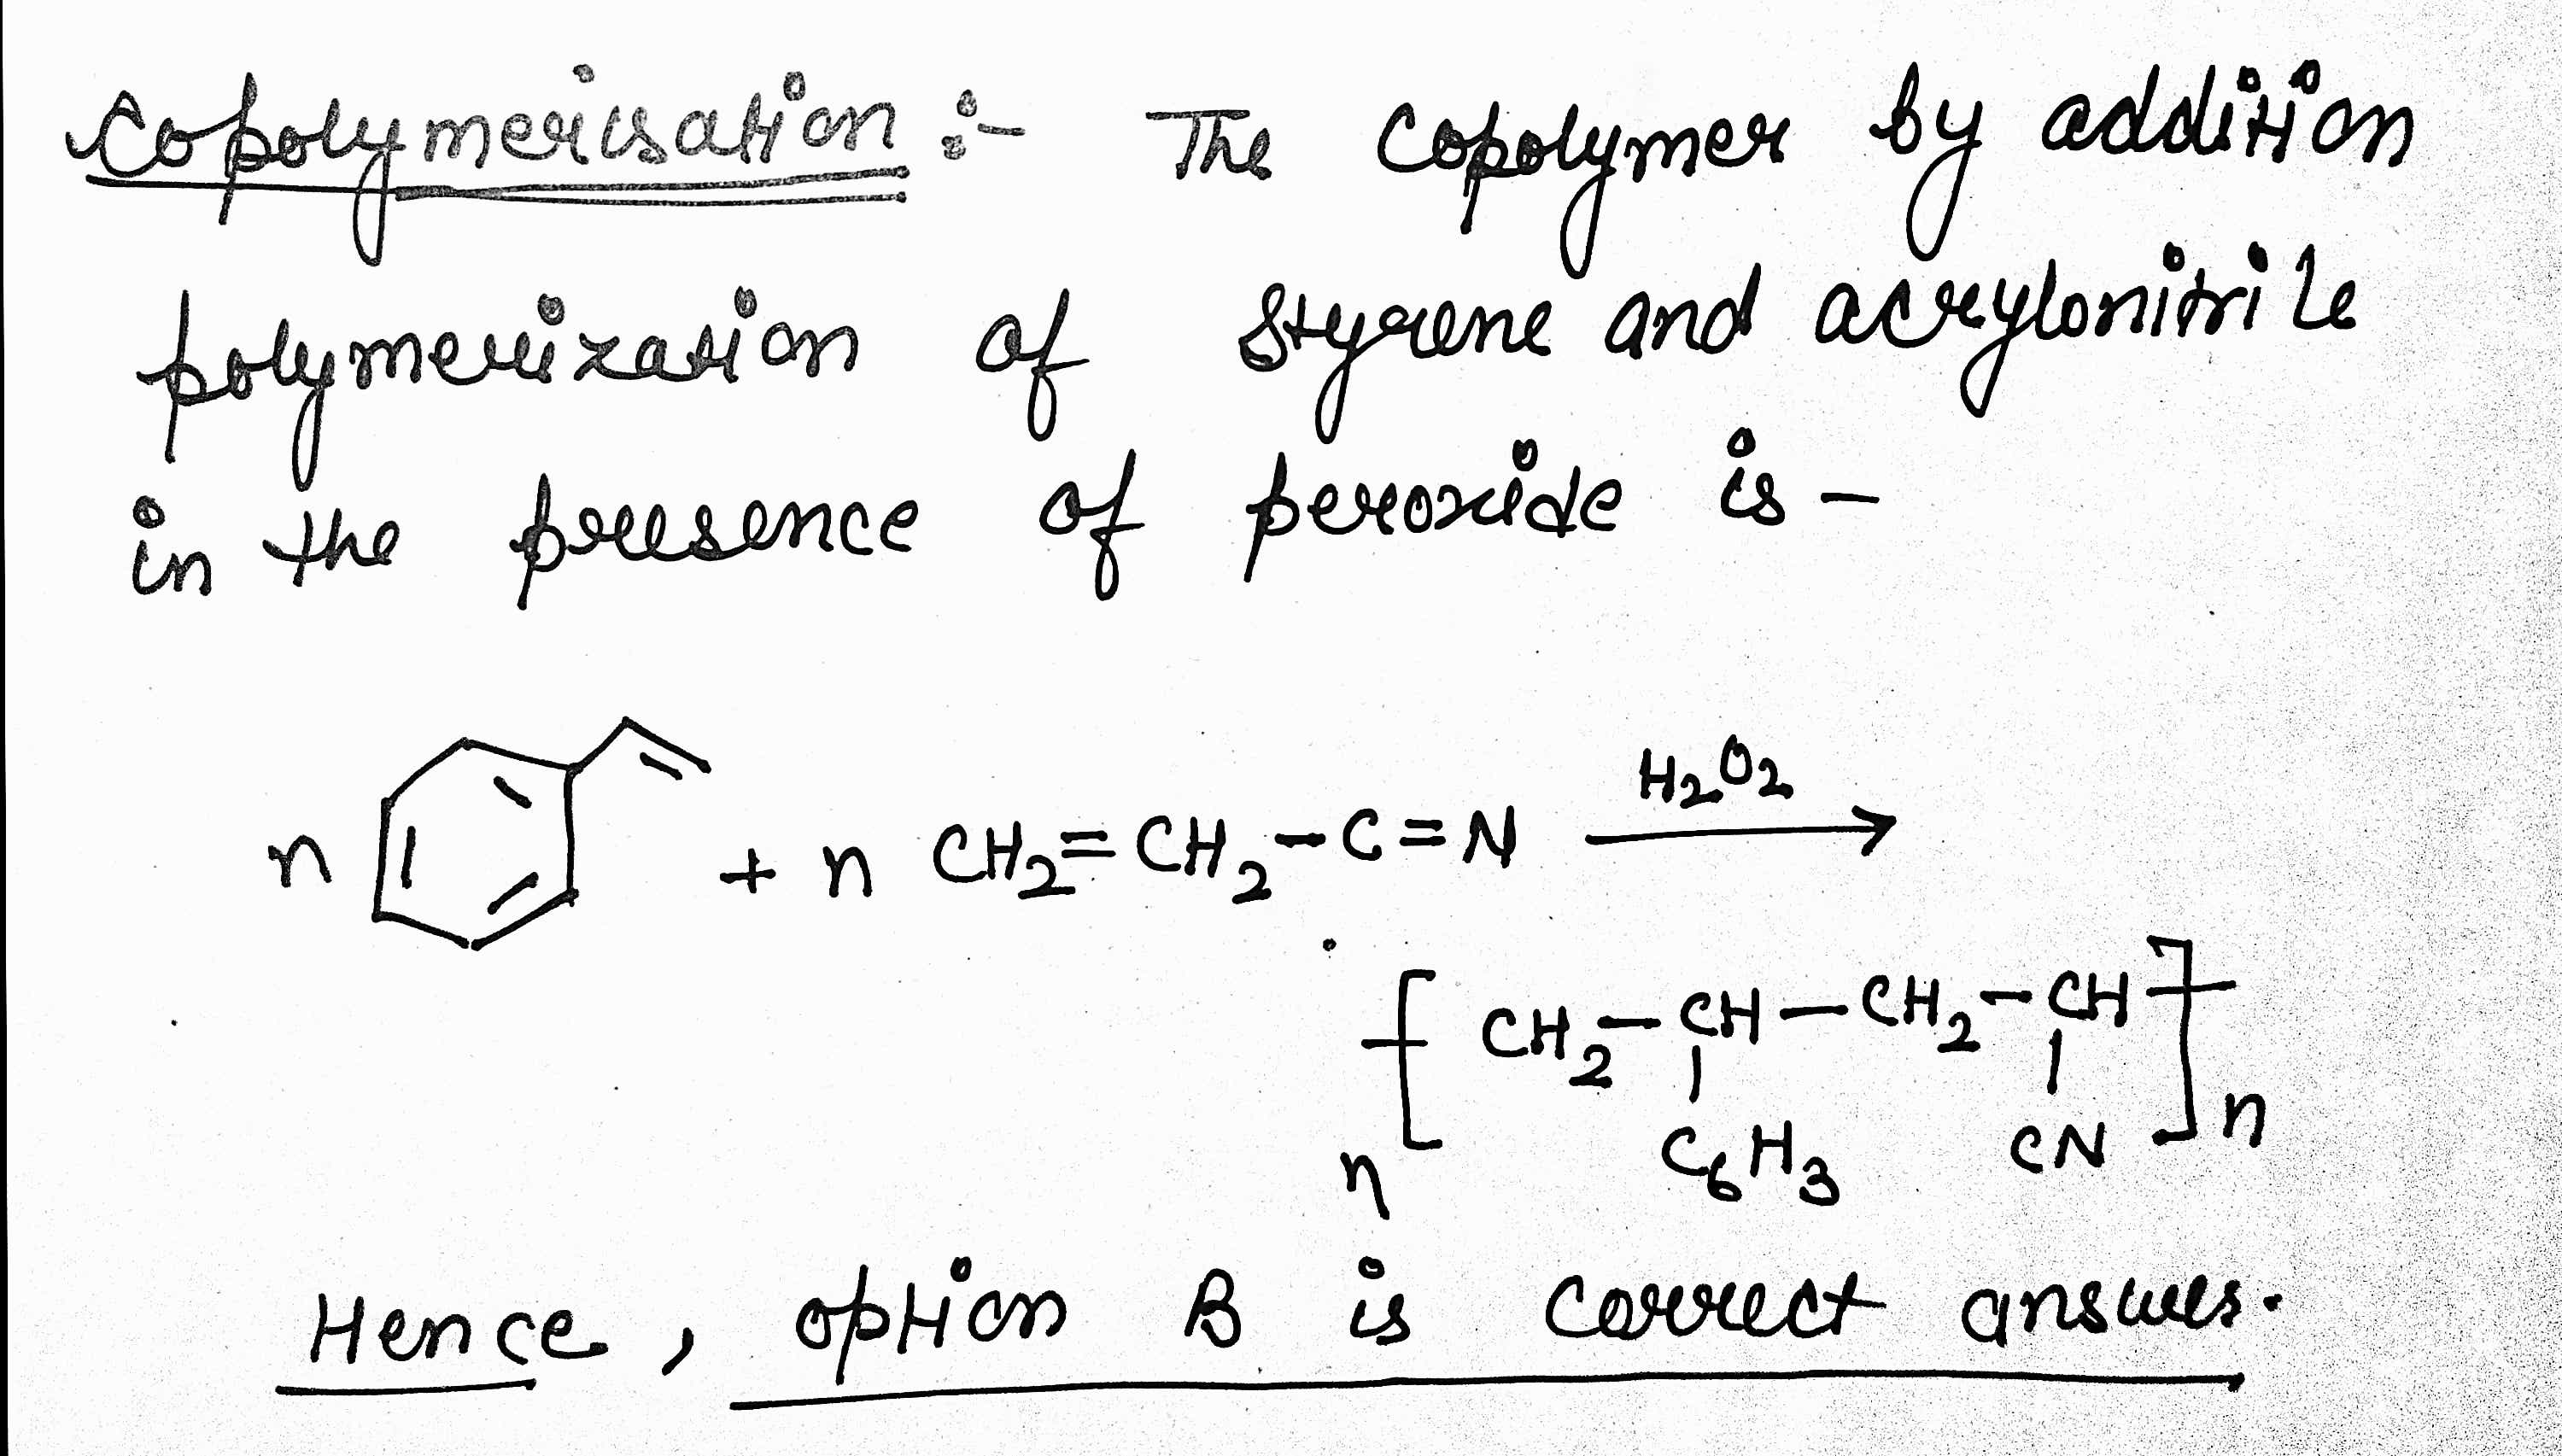 Copolymerisation :- The Copolymer by addition
polymerization of Styrene and acrylonitrile
in the presence of peroxide is -
n + n CH2=CH2-C=N H2O2
[CH2-CH-CH2-CH]
n C6H3 CN n
Hence, option B is correct answer.